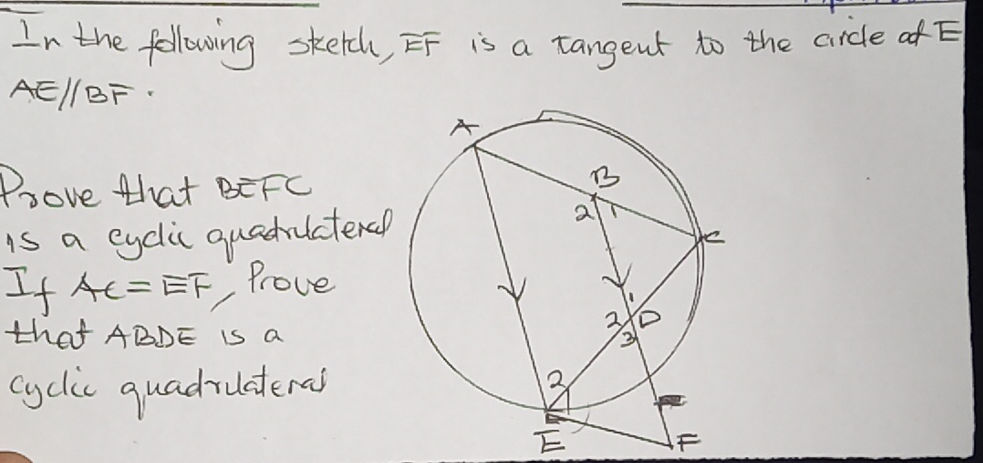 In the following sketch, EF is a tangent to the circle at E
AE//BF.
A
Prove that BEFC
B
2 1
is a cyclic quadrilateral
C
If AC = EF, Prove
that ABDE is a
1
2 D
3
cyclic quadrilateral
2
1
E
F